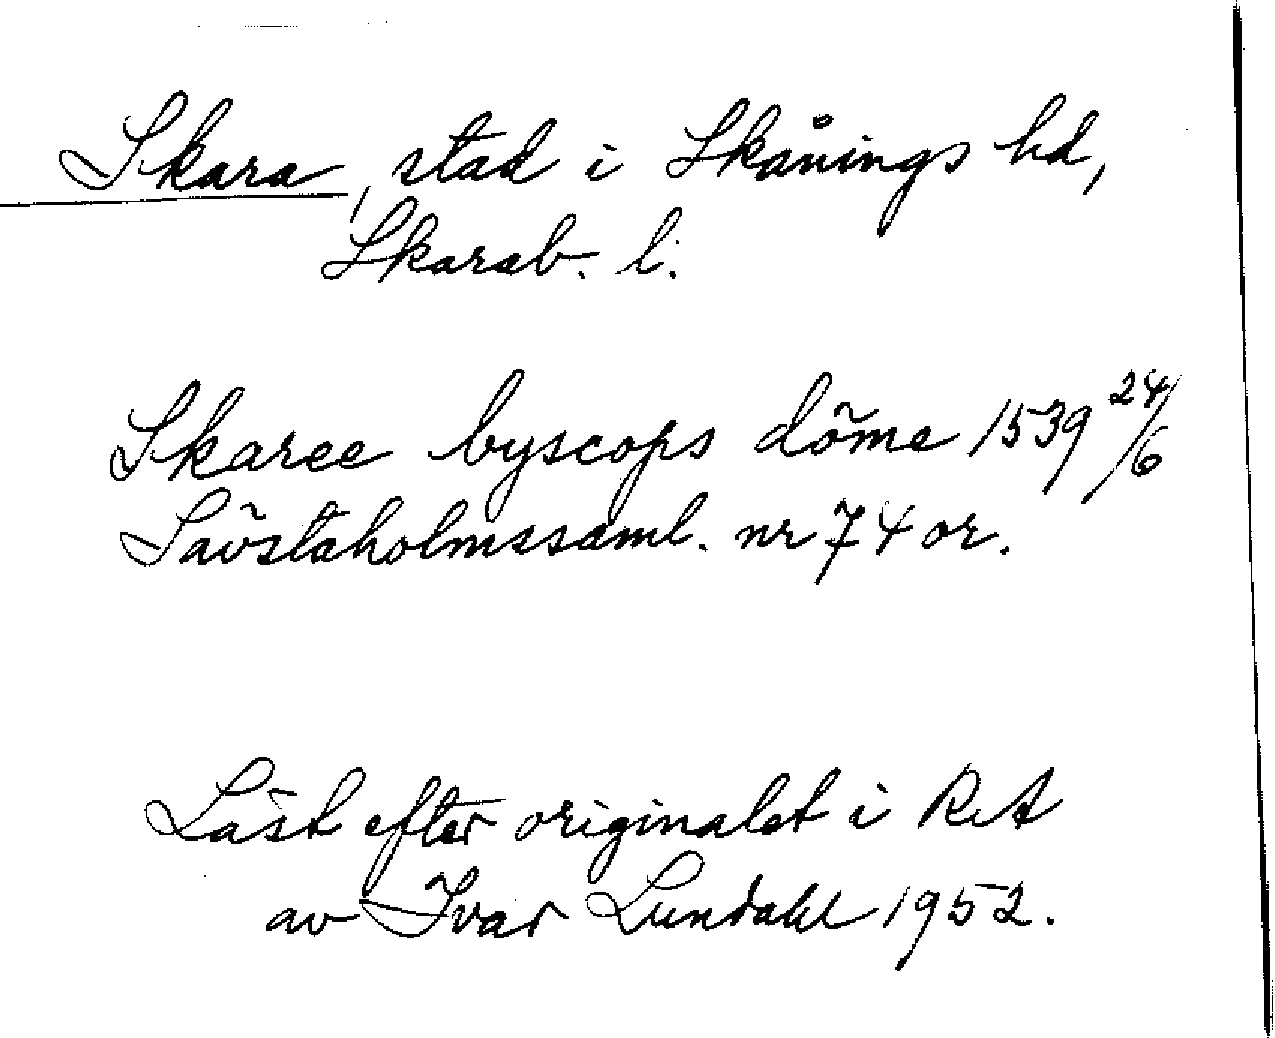 Skara, stad i Skånings hd,
Skarab. l.
Skaree byscops döme 1539 24/6
Sävstaholmssaml. nr 74 or.
Läst efter originalet i RA
av Ivar Lundahl 1952.